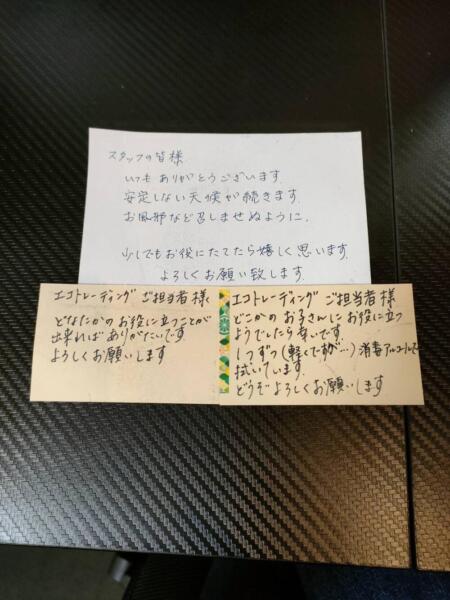 スタッフの皆様
いつもありがとうございます
安定しない天候が続きます
お風邪など召しませぬように.
少しでもお役にたてたら嬉しく思います.
よろしくお願い致します.
エコトレーディング ご担当者様
どなたかのお役に立つことが
出来ればありがたいです
よろしくお願いします
エコトレーディング ご担当者様
どこかのお子さんにお役に立つ
ようでしたら幸いです
1つずつ(軽くですが…)消毒アルコールで
拭いています.
どうぞよろしくお願いします